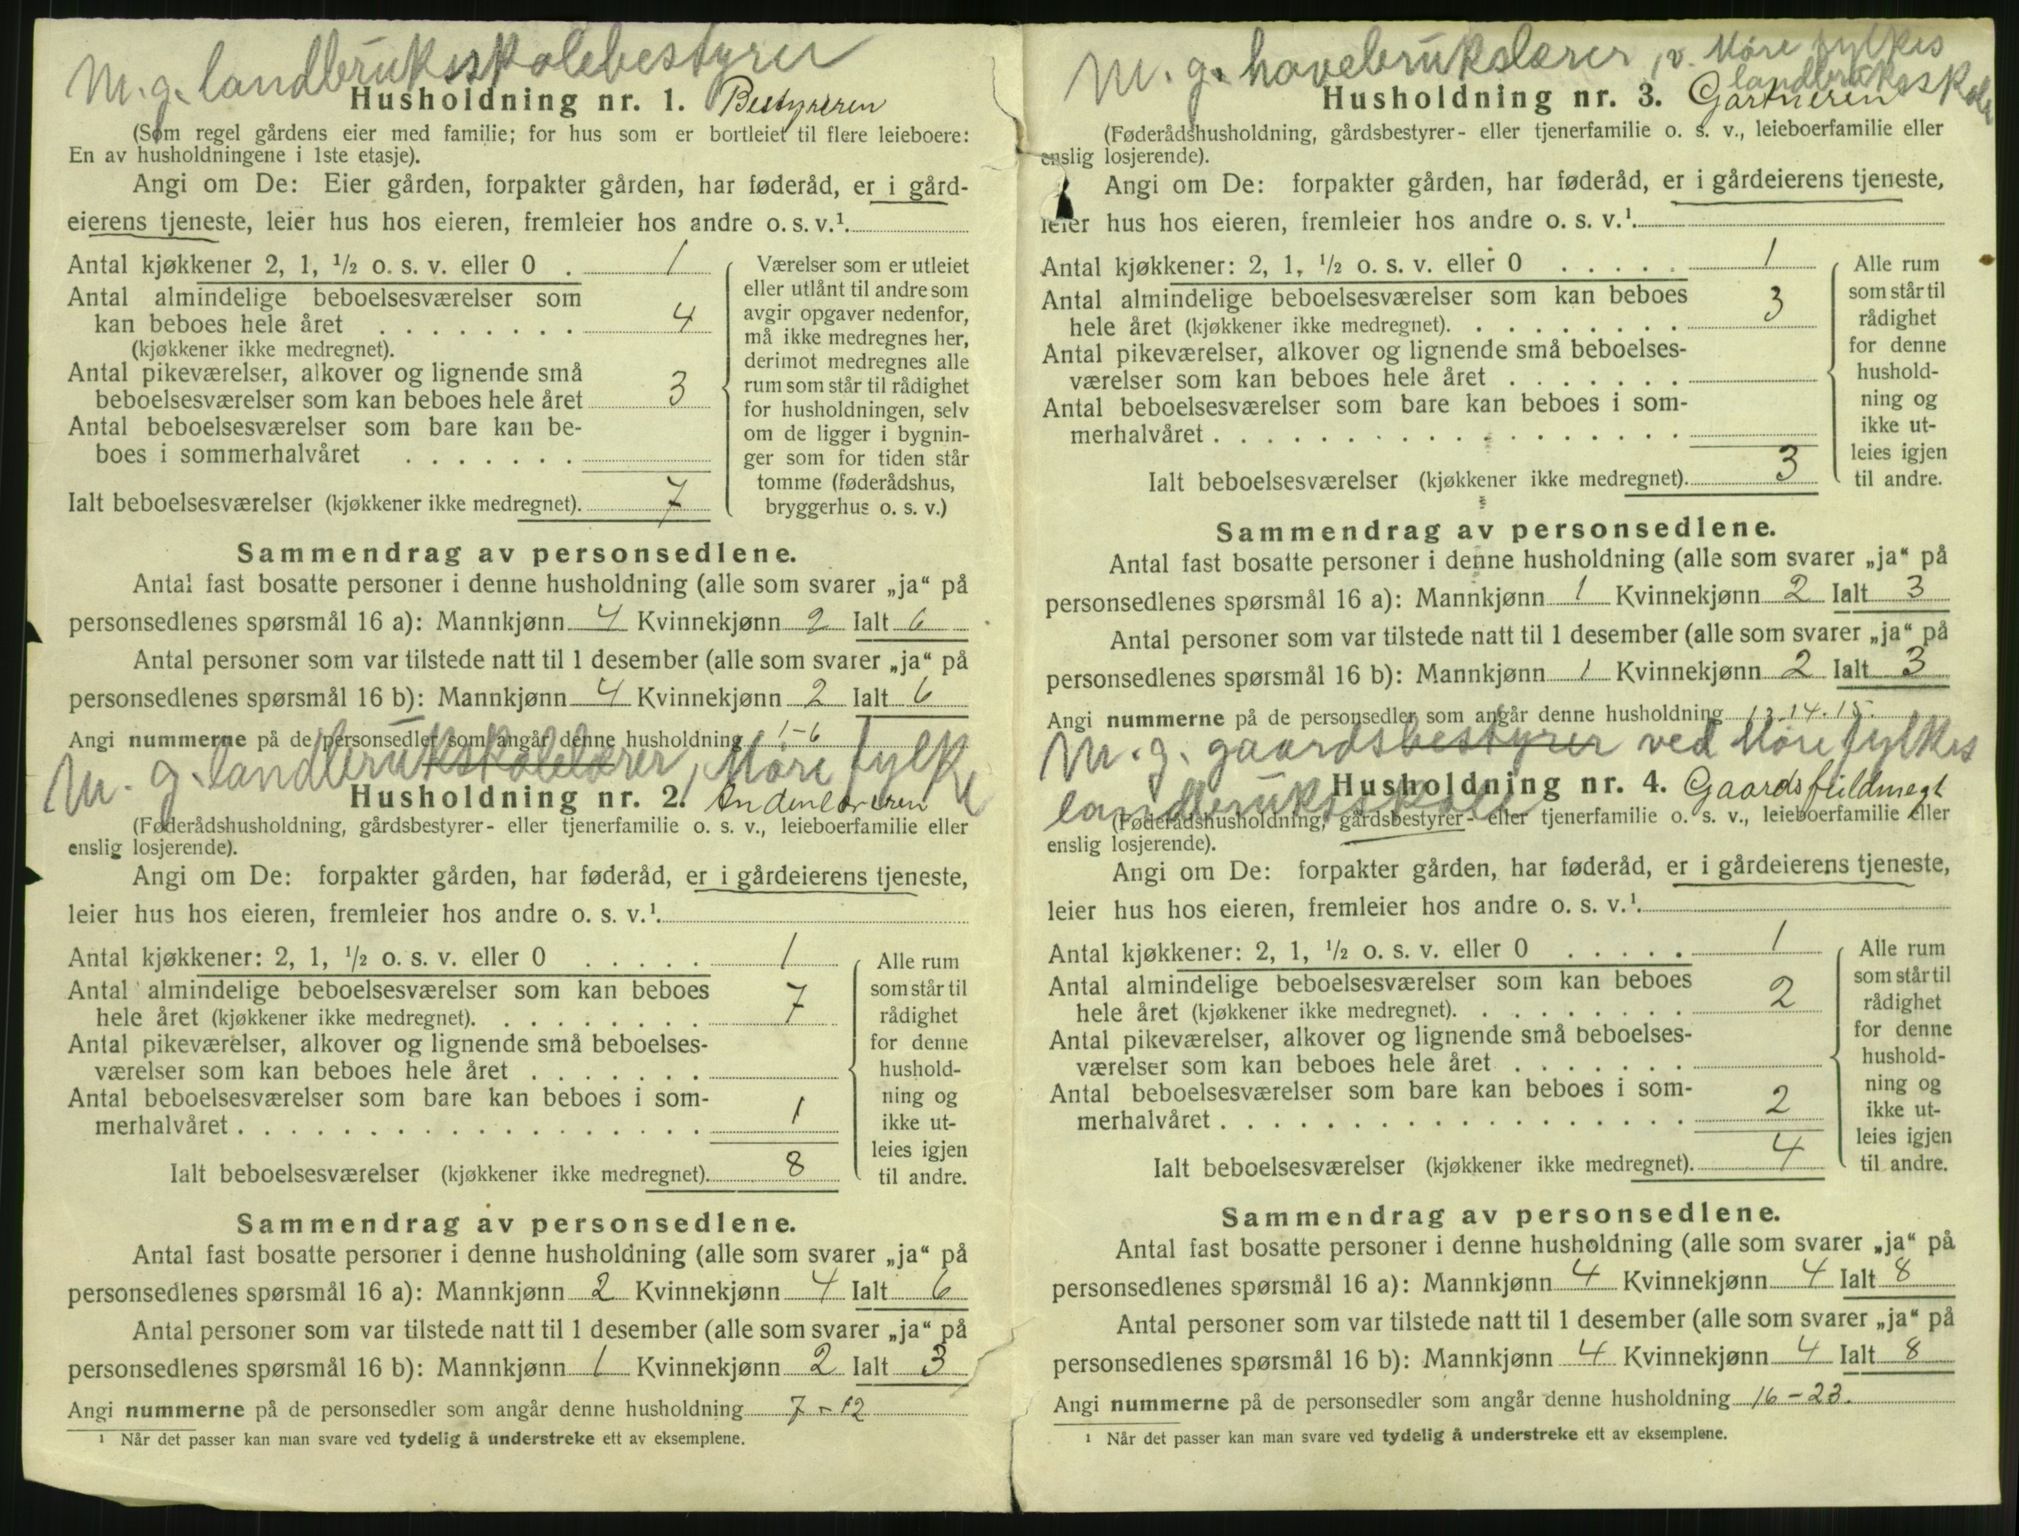 M. g. landbruksskolebestyrer
Husholdning nr. 1. Bestyreren
(Som regel gårdens eier med familie; for hus som er bortleiet til flere leieboere:
En av husholdningene i 1ste etasje).
Angi om De: Eier gården, forpakter gården, har føderåd, er i gård-
eierens tjeneste, leier hus hos eieren, fremleier hos andre o. s. v.¹.
Antal kjøkkener 2, 1, ½ o. s. v. eller 0 . 1
Antal almindelige beboelsesværelser som
kan beboes hele året . . . . . . . . 4
(kjøkkener ikke medregnet).
Antal pikeværelser, alkover og lignende små
beboelsesværelser som kan beboes hele året 3
Antal beboelsesværelser som bare kan be-
boes i sommerhalvåret . . . . . . .
Ialt beboelsesværelser (kjøkkener ikke medregnet). 7
Værelser som er utleiet
eller utlånt til andre som
avgir opgaver nedenfor,
må ikke medregnes her,
derimot medregnes alle
rum som står til rådighet
for husholdningen, selv
om de ligger i bygnin-
ger som for tiden står
tomme (føderådshus,
bryggerhus o. s. v.)
Sammendrag av personsedlene.
Antal fast bosatte personer i denne husholdning (alle som svarer „ja“ på
personsedlenes spørsmål 16 a): Mannkjønn 4 Kvinnekjønn 2 Ialt 6
Antal personer som var tilstede natt til 1 desember (alle som svarer „ja“ på
personsedlenes spørsmål 16 b): Mannkjønn 4 Kvinnekjønn 2 Ialt 6
Angi nummerne på de personsedler som angår denne husholdning 1-6
M. g. landbrukskolelærer, Møre fylke
Husholdning nr. 2. Andenlæreren
(Føderådshusholdning, gårdsbestyrer- eller tjenerfamilie o. s. v., leieboerfamilie eller
enslig losjerende).
Angi om De: forpakter gården, har føderåd, er i gårdeierens tjeneste,
leier hus hos eieren, fremleier hos andre o. s. v.¹.
Antal kjøkkener: 2, 1, ½ o. s. v. eller 0 . . . . . 1
Antal almindelige beboelsesværelser som kan beboes
hele året (kjøkkener ikke medregnet). . . . . . . . . 7
Antal pikeværelser, alkover og lignende små beboelses-
værelser som kan beboes hele året . . . . . . .
Antal beboelsesværelser som bare kan beboes i som-
merhalvåret . . . . . . . . . . . . . . . . . . 1
Ialt beboelsesværelser (kjøkkener ikke medregnet). 8
Alle rum
som står til
rådighet
for denne
hushold-
ning og
ikke ut-
leies igjen
til andre.
Sammendrag av personsedlene.
Antal fast bosatte personer i denne husholdning (alle som svarer „ja“ på
personsedlenes spørsmål 16 a): Mannkjønn 2 Kvinnekjønn 4 Ialt 6
Antal personer som var tilstede natt til 1 desember (alle som svarer „ja“ på
personsedlenes spørsmål 16 b): Mannkjønn 1 Kvinnekjønn 2 Ialt 3
Angi nummerne på de personsedler som angår denne husholdning 7-12
¹ Når det passer kan man svare ved tydelig å understreke ett av eksemplene.
M. g. havebrukslærer, v. Møre fylkes
landbruksskole
Husholdning nr. 3. Gartneren
(Føderådshusholdning, gårdsbestyrer- eller tjenerfamilie o. s. v., leieboerfamilie eller
enslig losjerende).
Angi om De: forpakter gården, har føderåd, er i gårdeierens tjeneste,
leier hus hos eieren, fremleier hos andre o. s. v.¹.
Antal kjøkkener: 2, 1, ½ o. s. v. eller 0 . . . . . 1
Antal almindelige beboelsesværelser som kan beboes
hele året (kjøkkener ikke medregnet). . . . . . . . . 3
Antal pikeværelser, alkover og lignende små beboelses-
værelser som kan beboes hele året . . . . . . .
Antal beboelsesværelser som bare kan beboes i som-
merhalvåret . . . . . . . . . . . . . . . . . .
Ialt beboelsesværelser (kjøkkener ikke medregnet). 3
Alle rum
som står til
rådighet
for denne
hushold-
ning og
ikke ut-
leies igjen
til andre.
Sammendrag av personsedlene.
Antal fast bosatte personer i denne husholdning (alle som svarer „ja“ på
personsedlenes spørsmål 16 a): Mannkjønn 1 Kvinnekjønn 2 Ialt 3
Antal personer som var tilstede natt til 1 desember (alle som svarer „ja“ på
personsedlenes spørsmål 16 b): Mannkjønn 1 Kvinnekjønn 2 Ialt 3
Angi nummerne på de personsedler som angår denne husholdning 13.14.15.
M. g. gaardsbestyrer ved Møre fylkes
landbruksskole
Husholdning nr. 4. Gaardsfuldmegt
(Føderådshusholdning, gårdsbestyrer- eller tjenerfamilie o. s. v., leieboerfamilie eller
enslig losjerende).
Angi om De: forpakter gården, har føderåd, er i gårdeierens tjeneste,
leier hus hos eieren, fremleier hos andre o. s. v.¹.
Antal kjøkkener: 2, 1, ½ o. s. v. eller 0 . . . . . 1
Antal almindelige beboelsesværelser som kan beboes
hele året (kjøkkener ikke medregnet). . . . . . . . . 2
Antal pikeværelser, alkover og lignende små beboelses-
værelser som kan beboes hele året . . . . . . .
Antal beboelsesværelser som bare kan beboes i som-
merhalvåret . . . . . . . . . . . . . . . . . . 2
Ialt beboelsesværelser (kjøkkener ikke medregnet). 4
Alle rum
som står til
rådighet
for denne
hushold-
ning og
ikke ut-
leies igjen
til andre.
Sammendrag av personsedlene.
Antal fast bosatte personer i denne husholdning (alle som svarer „ja“ på
personsedlenes spørsmål 16 a): Mannkjønn 4 Kvinnekjønn 4 Ialt 8
Antal personer som var tilstede natt til 1 desember (alle som svarer „ja“ på
personsedlenes spørsmål 16 b): Mannkjønn 4 Kvinnekjønn 4 Ialt 8
Angi nummerne på de personsedler som angår denne husholdning 16-23.
¹ Når det passer kan man svare ved tydelig å understreke ett av eksemplene.